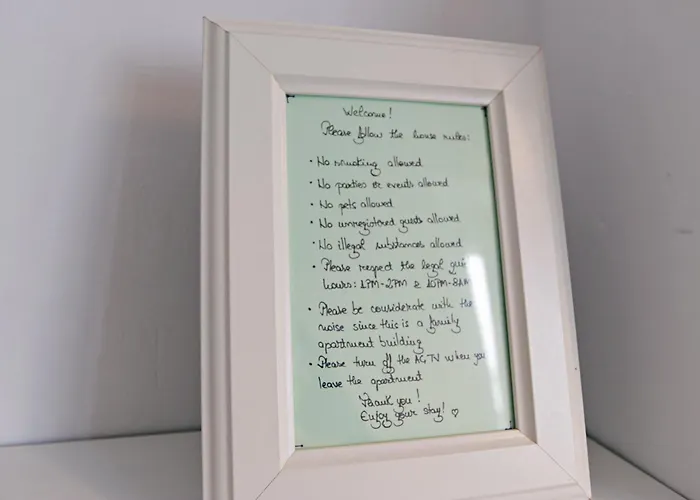 Welcome!
Please follow the house rules:
• No smoking allowed
• No parties or events allowed
• No pets allowed
• No unregistered guests allowed
• No illegal substances allowed
• Please respect the legal quie
hours: 1PM-2PM & 10PM-8AM
• Please be considerate with the
noise since this is a family
apartment building
• Please turn off the AC, TV when you
leave the apartment
Thank you!
Enjoy your stay! ♡